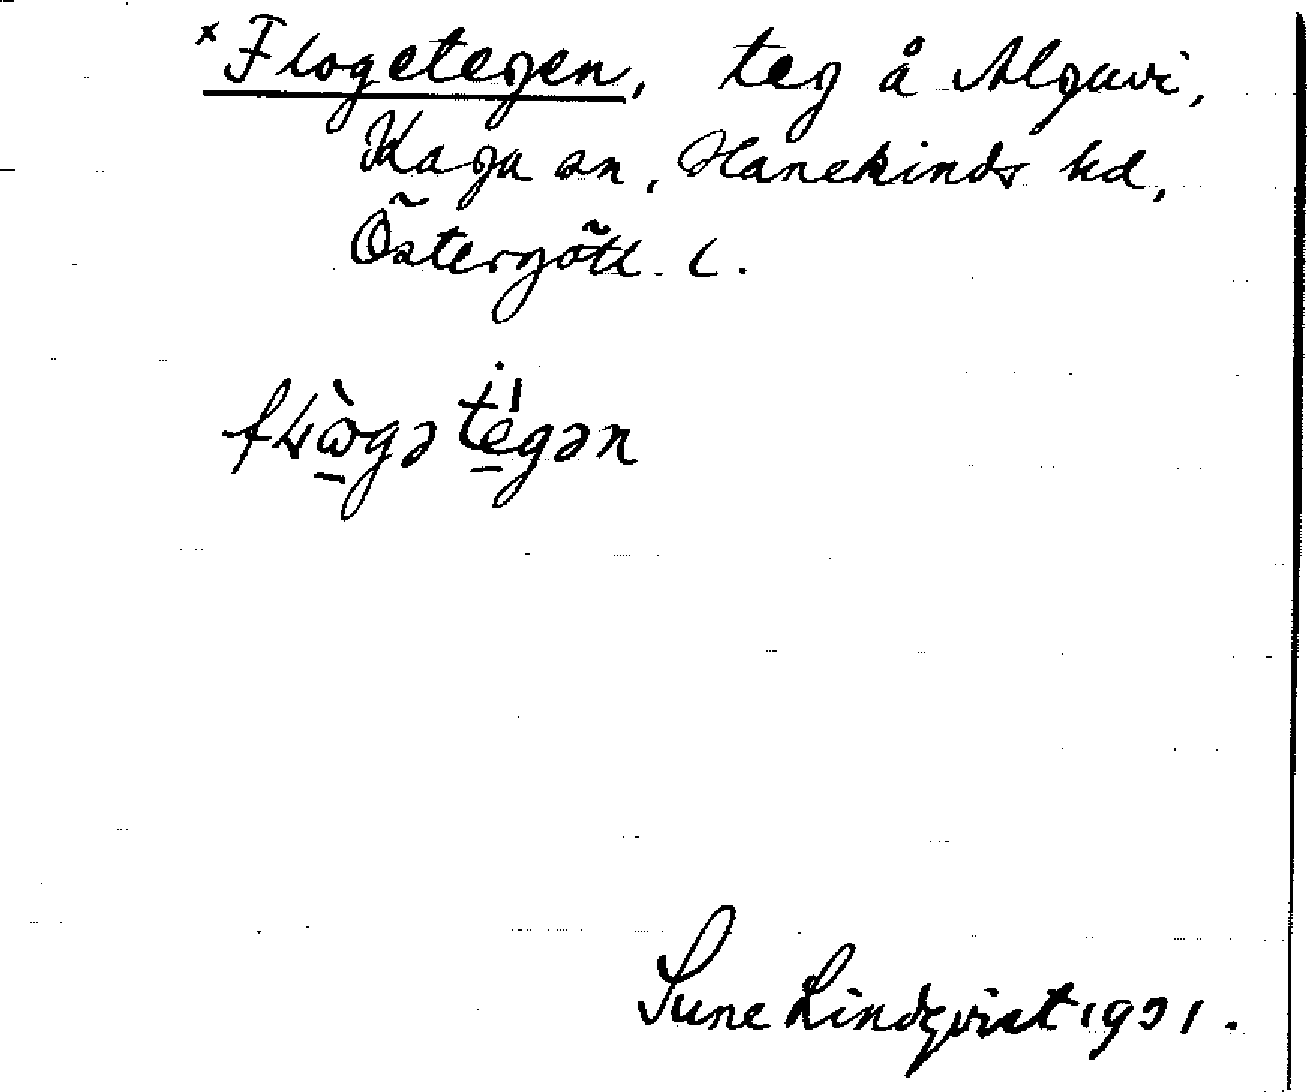 *Flogetegen, teg å Alguvi,
Kaga sn, Hanekinds hd,
Östergötl. l.
fɫògə tégən
Sune Lindqvist 1931.